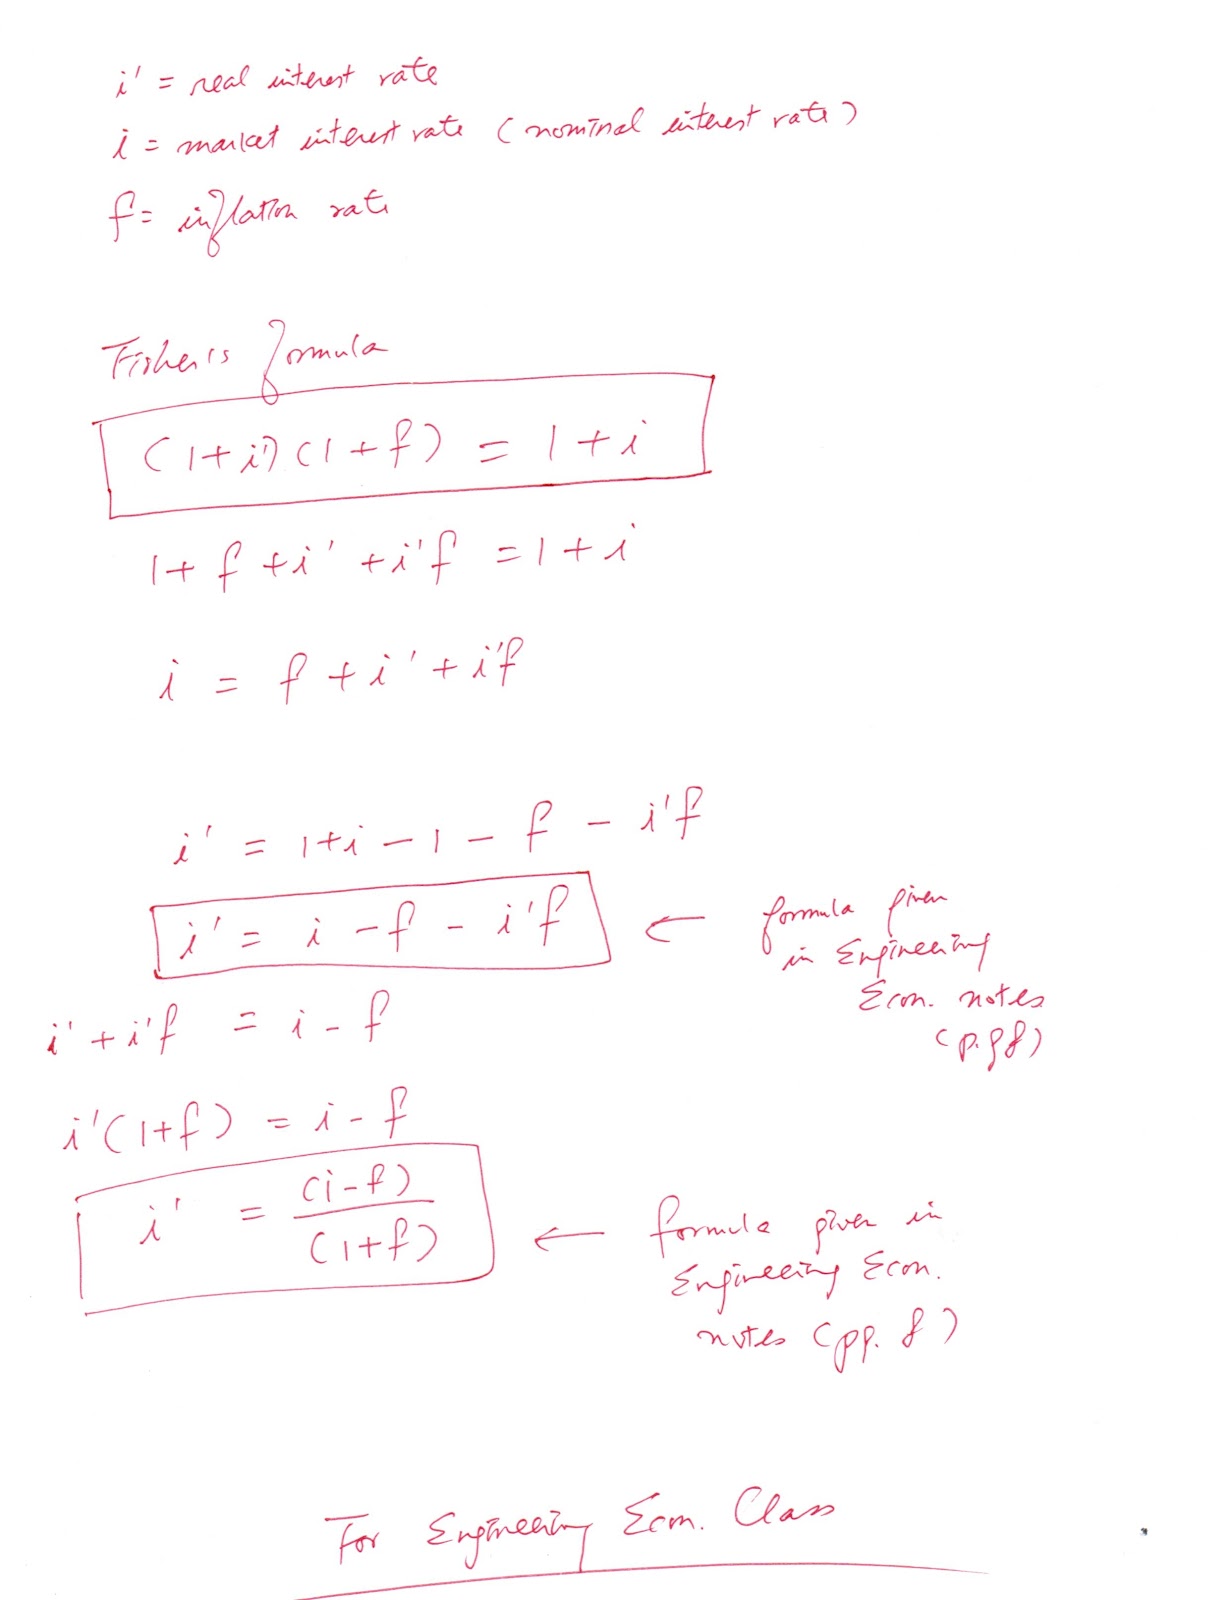 i' = real interest rate
i = market interest rate (nominal interest rate)
f = inflation rate
Fisher's formula
(1+i')(1+f) = 1+i
1+f+i'+i'f = 1+i
i = f+i'+i'f
i' = 1+i-1-f-i'f
i' = i-f-i'f
← formula given
in Engineering
Econ. notes
i'+i'f = i-f
i'(1+f) = i-f
i' = (i-f)
(1+f)
← formula given in
Engineering Econ.
notes (pp. 8)
For Engineering Econ. Class